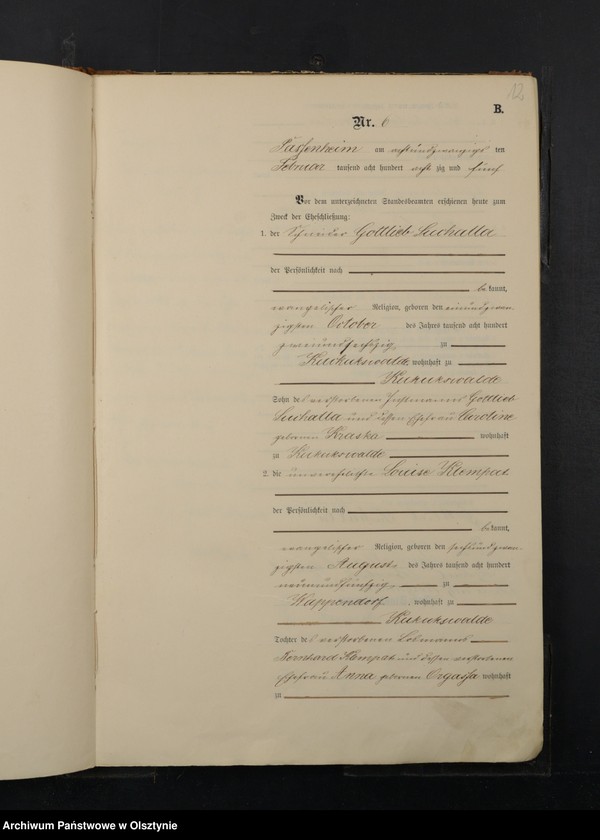 12
B.
Nr. 6
Passenheim am achtundzwanzigs ten
Februar tausend acht hundert acht zig und fünf
Vor dem unterzeichneten Standesbeamten erschienen heute zum
Zweck der Eheschließung:
1. der Schneider Gottlieb Suchalla
der Persönlichkeit nach
be kannt,
evangelischer Religion, geboren den einundzwan-
zigsten October des Jahres tausend acht hundert
zweiundsechszig zu
Kukukswalde, wohnhaft zu
Kukukswalde
Sohn des verstorbenen Instmanns Gottlieb
Suchalla und dessen Ehefrau Caroline
geborne Kraska wohnhaft
zu Kukukswalde
2. die unverehelichte Louise Klempat
der Persönlichkeit nach
be kannt,
evangelischer Religion, geboren den sechsundzwan-
zigsten August des Jahres tausend acht hundert
neunundfünfzig zu
Wappendorf, wohnhaft zu
Kukukswalde
Tochter des verstorbenen Losmanns
Bernhard Klempat und dessen verstorbenen
Ehefrau Anna gebornen Orgassa wohnhaft
zu
Archiwum Państwowe w Olsztynie